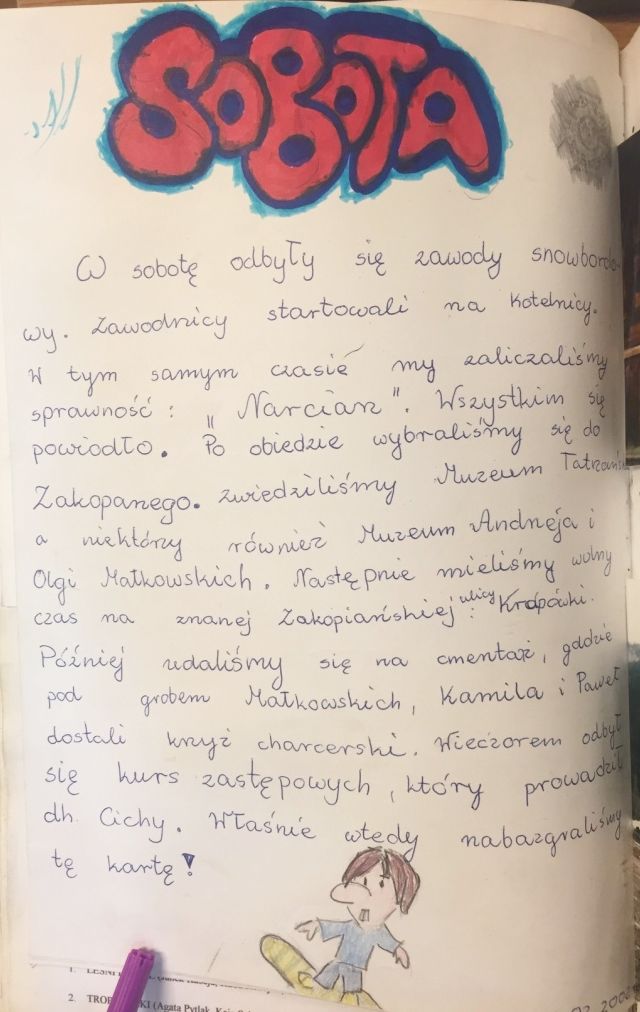 SOBOTA
W sobotę odbyły się zawody snowbordo-
wy. Zawodnicy startowali na Kotelnicy.
W tym samym czasie my zaliczaliśmy
sprawność: „Narciarz". Wszystkim się
powiodło. Po obiedzie wybraliśmy się do
Zakopanego. Zwiedziliśmy Muzeum
a niektórzy również Muzeum Andrzeja i
Olgi Małkowskich. Następnie mieliśmy wolny
czas na znanej Zakopiańskiej: ulicy Krópówki.
Później udaliśmy się na cmentaż, gddzie
pod grobem Małkowskich, Kamila i Paweł
dostali krzyż charcerski. Wieczorem odbył
się kurs zastępowych, który prowadził
dh. Cichy. Właśnie wtedy nabazgraliśmy
tę kartę!
1.
2. (Agata Pytlak,